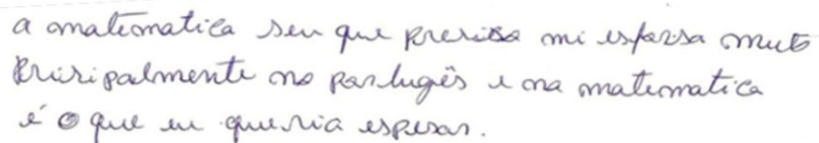 a matematica seu que precisa mi esforsa muto
Prisipalmente no portugês e na matematica
é o que eu queria espesar.